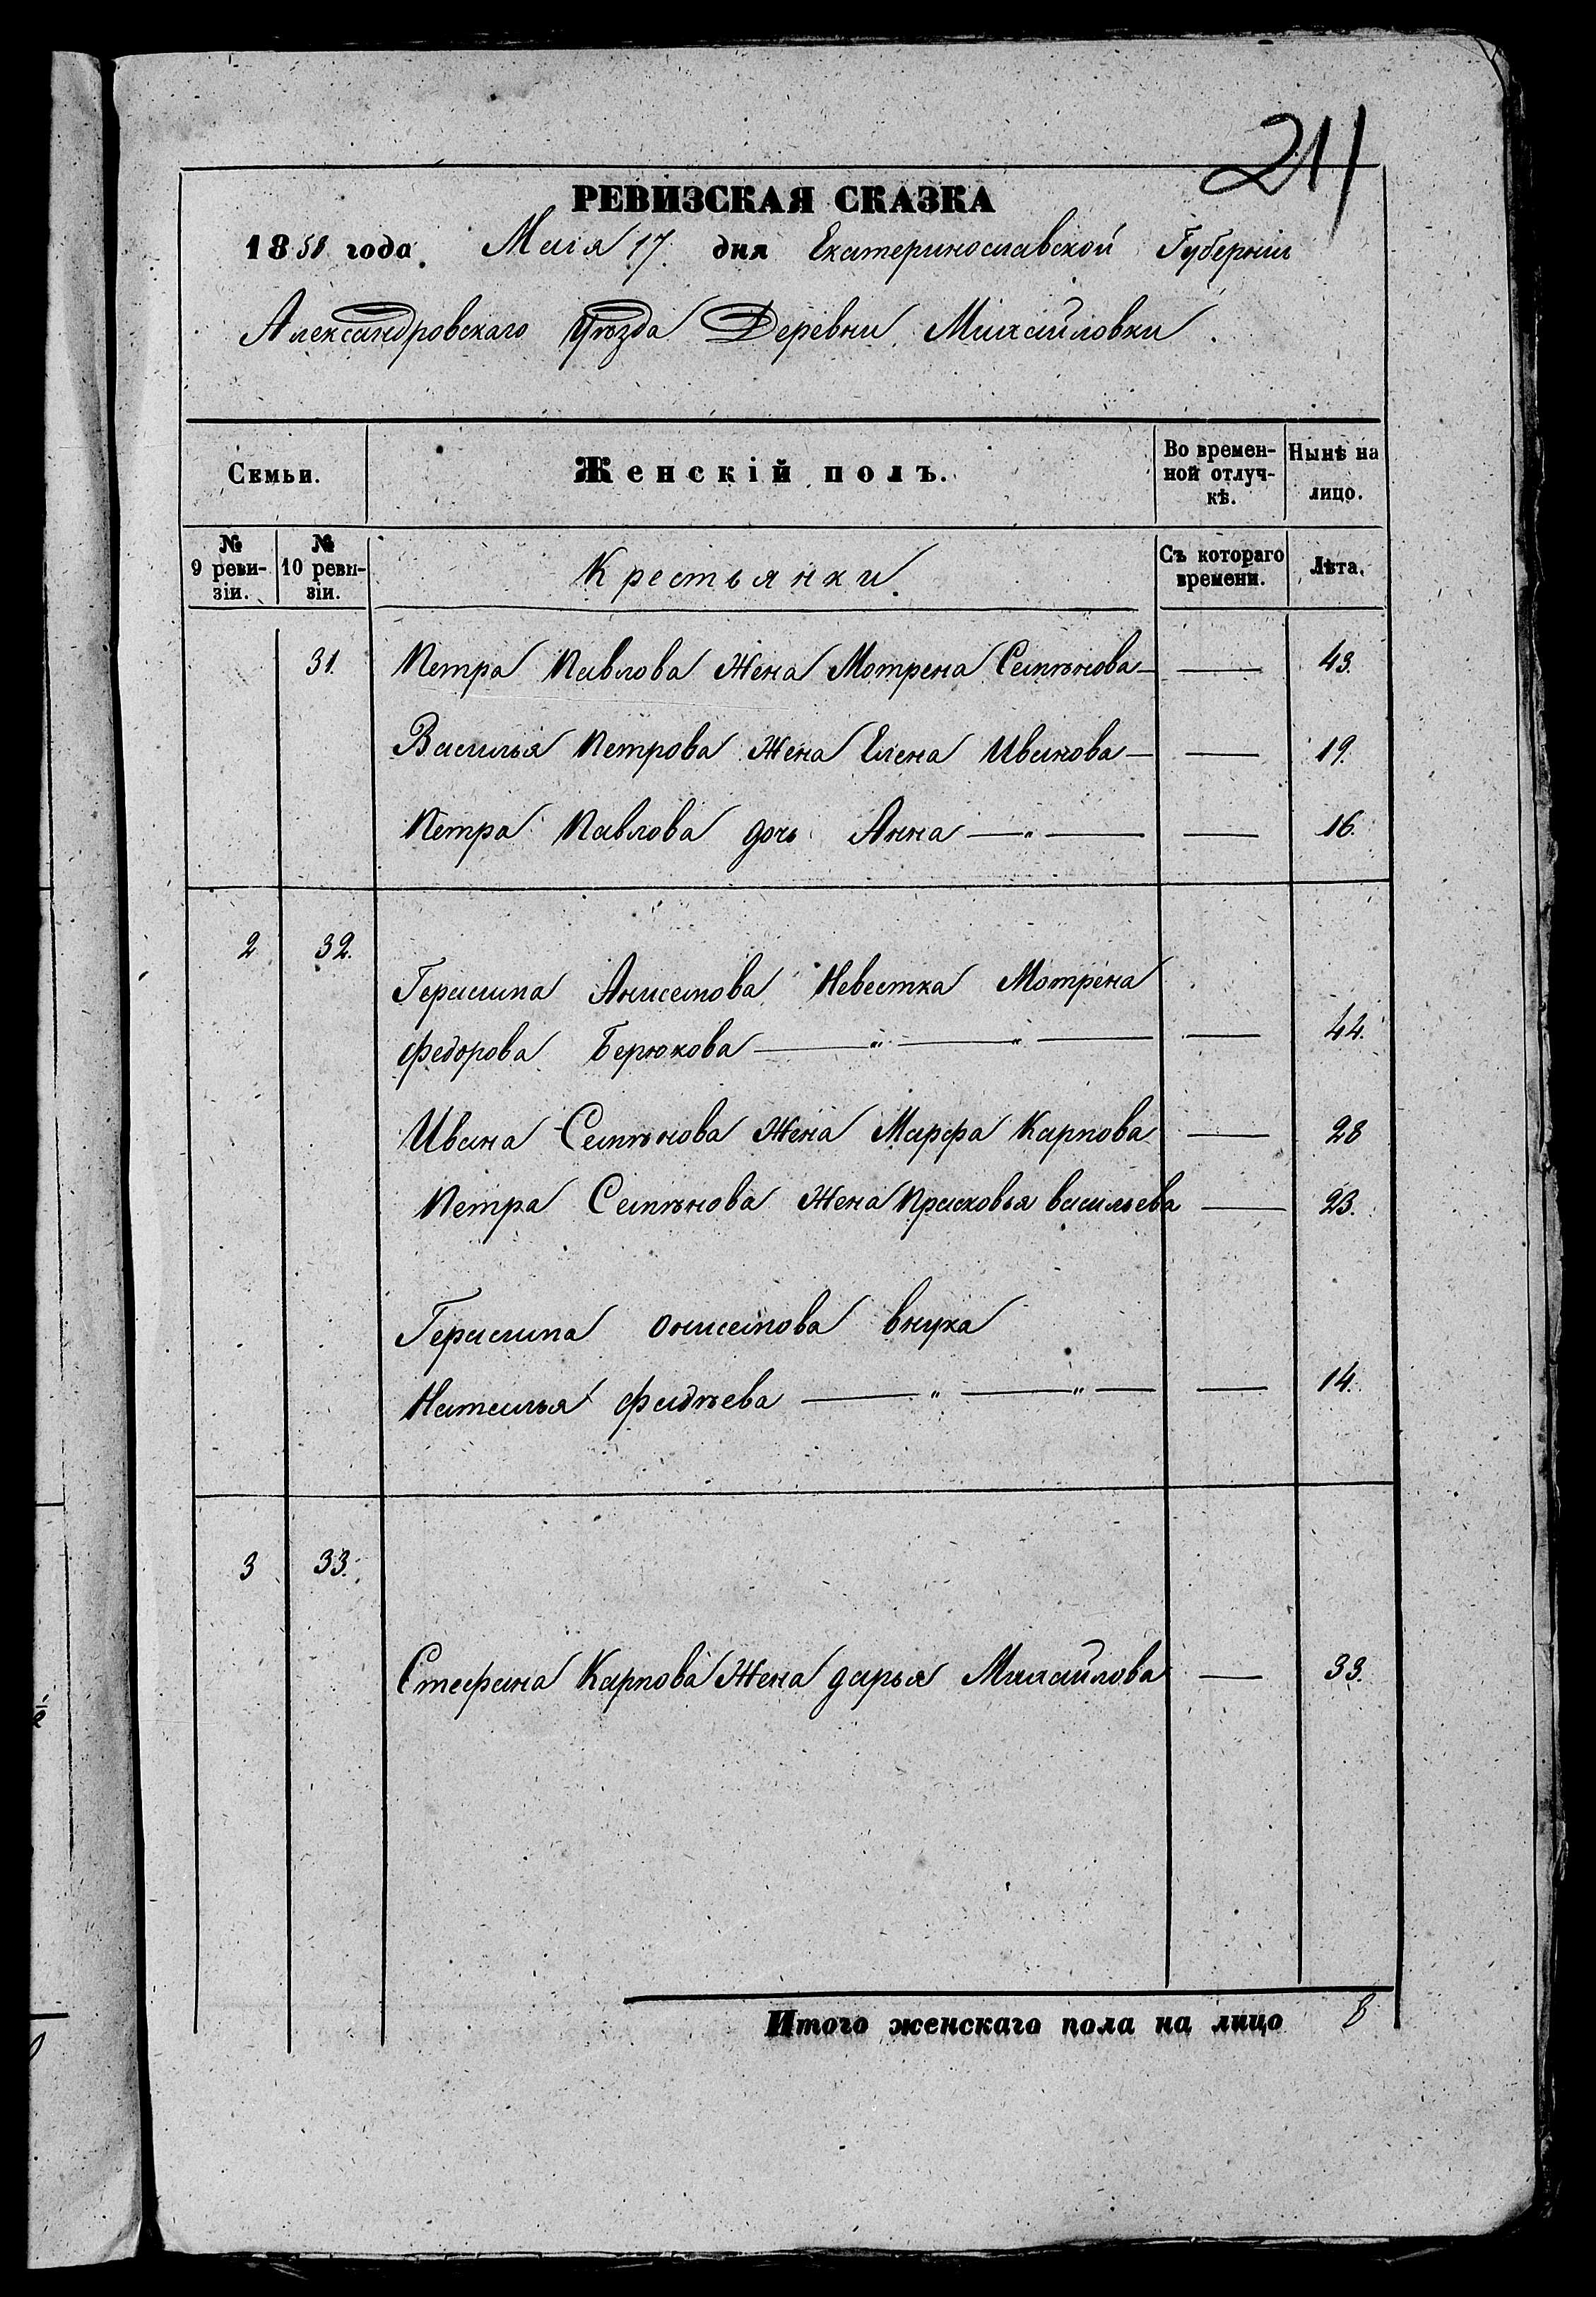 211
РЕВИЗСКАЯ СКАЗКА
1858 года. Маія 17. дня Екатеринославской Губерніи
Александровскаго Уѣзда Деревни Михайловки.
Семьи. Женскій полъ. Во времен-ной отлуч-кѣ. Нынѣ на лицо.
№ 9 реви-зіи. № 10 реви-зіи. Крестьянки. Съ котораго времени. Лѣта.
31. Петра Павлова Жена Мотрена Семѣнова — — 43.
Василья Петрова Жена Елена Иванова — — 19.
Петра Павлова дочь Анна — " — — 16.
2 32.
Герасима Анисемова Невестка Мотрена
Федорова Берюкова — " — " — — 44.
Ивана Семѣнова Жена Марфа Карпова — 28
Петра Семѣнова Жена Прасковья васильева — 23.
Герасима онисемова внука
Наталья Фадѣева — " — " — — 14.
3 33.
Стефана Карпова Жена дарья Михайлова — 33.
Итого женскаго пола на лицо 8